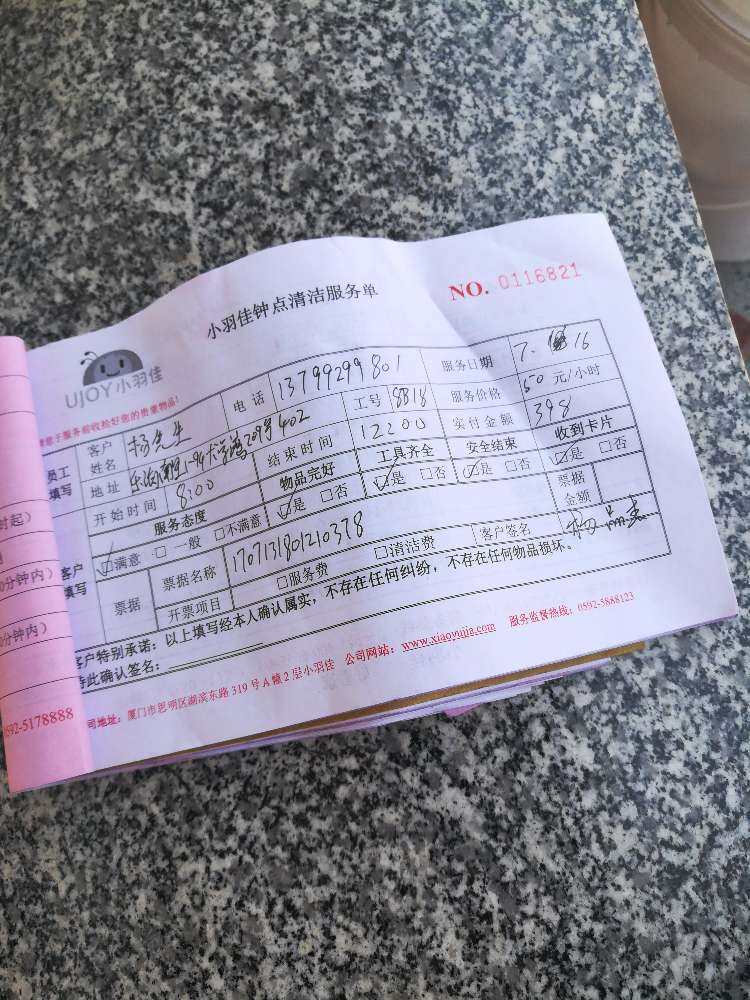 小羽佳钟点清洁服务单
NO. 0116821
UJOY小羽佳
请您于服务前收检好您的贵重物品!
员工填写
客户姓名 杨先生 电话 13799299801 服务日期 7. 16
地址 209号402 工号 8818 服务价格 50 元/小时
开始时间 8:00 结束时间 12:00 实付金额 398
客户填写
服务态度 物品完好 工具齐全 安全结束 收到卡片
☑满意 □一般 □不满意 ☑是 □否 ☑是 □否 ☑是 □否 ☑是 □否
票据 票据名称 1707131801210378 票据金额
开票项目 □服务费 □清洁费 客户签名
客户特别承诺：以上填写经本人确认属实，不存在任何纠纷，不存在任何物品损坏。
特此确认签名：
司地址：厦门市思明区湖滨东路319号A幢2层小羽佳 公司网站：www.xiaoyujia.com 服务监督热线：0592-5888123
时起）
0分钟内）
0分钟内）
0592-5178888